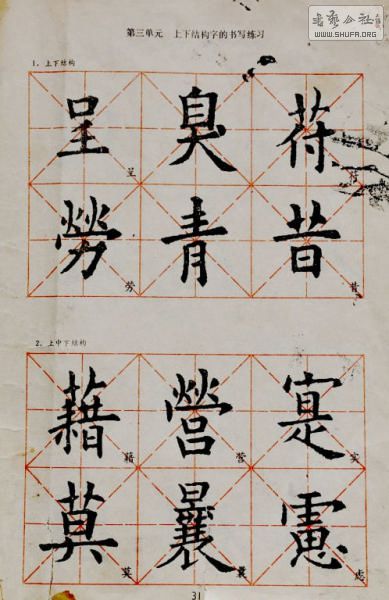 書藝公社
WWW.SHUFR.ORG
第三单元 上下结构字的书写练习
1、上下结构
呈 臭 苻
呈 苻
勞 青 昔
劳 昔
2、上中下结构
藉 營 寔
籍 营 实
莫 曩 慮
莫 曩 虑
31